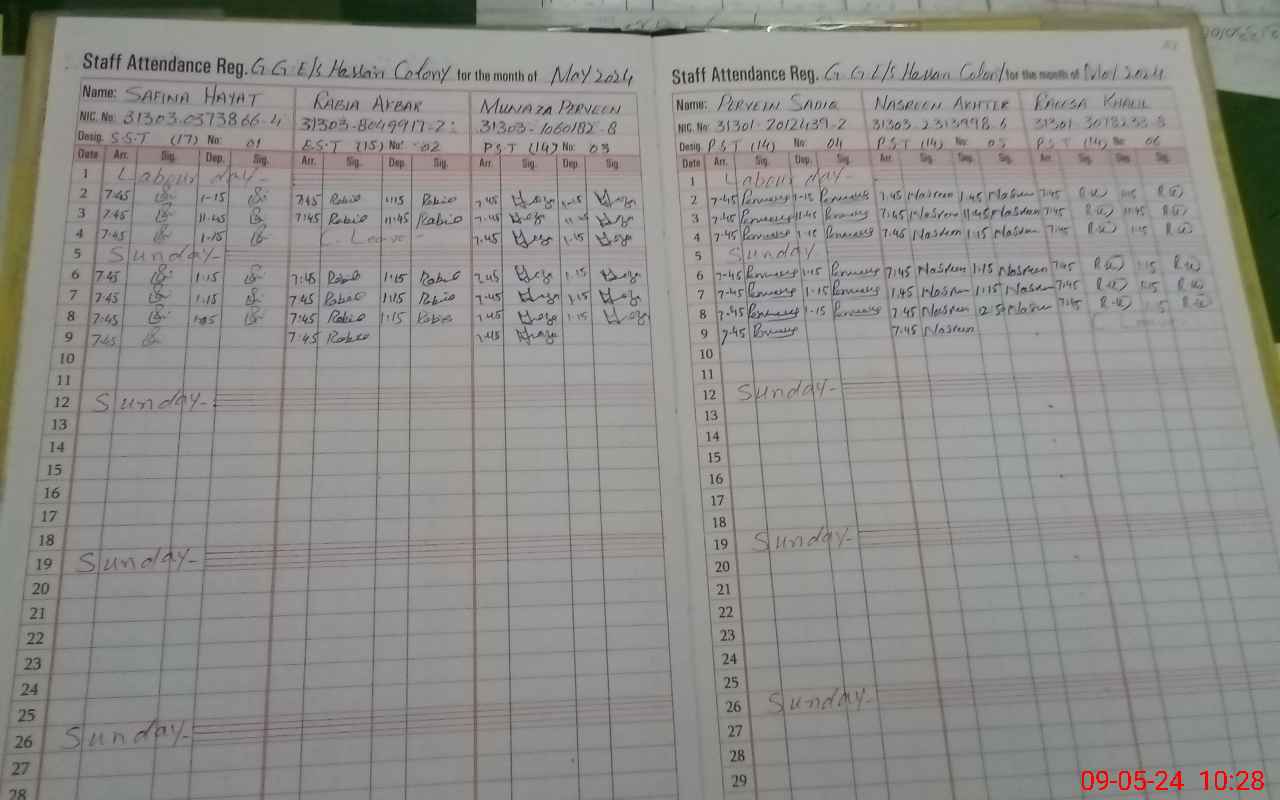 Staff Attendance Reg. G G E/S Hassain Colony for the month of May 2024
Name: SAFINA HAYAT RABIA AKBAR MUNAZA PERVEEN
NIC. No. 31303-0373866-4 31303-8049917-2 31303-1060182-8
Desig. S.S.T (17) No: 01 E.S.T (15) No: 02 P.S.T (14) No: 03
Date Arr. Sig. Dep. Sig. Arr. Sig. Dep. Sig. Arr. Sig. Dep. Sig.
1 Labour day-
2 7:45 1-15 7:45 Rabia 1:15 Rabia 7.45 1-15
3 7:45 11:45 7:45 Rabia 11:45 Rabia 7.45 11-45
4 7:45 1-15 C. Leave - 7.45 1-15
5 Sunday-
6 7:45 1-15 7:45 Rabia 1:15 Rabia 7.45 1-15
7 7:45 1-15 7:45 Rabia 1:15 Rabia 7.45 1-15
8 7:45 7:45 Rabia 1:15 Rabia 7.45 1-15
9 7:45 7:45 Rabia 7.45
10
11
12 Sunday-
13
14
15
16
17
18
19 Sunday-
20
21
22
23
24
25
26 Sunday-
27
28
Staff Attendance Reg. G G E/S Hassain Colony for the month of May 2024
Name: PERVEIN SADIQ NASREEN AKHTER RAEESA KHALIL
NIC. No: 31301-2012439-2 31303-2313998-6 31301-3078233-8
Desig. P S T (14) No: 04 P.S.T (14) No: 05 P.S.T (14) No: 06
Date Arr. Sig. Dep. Sig. Arr. Sig. Dep. Sig. Arr. Sig. Dep. Sig.
1 Labour day-
2 7-45 1-15 7.45 Nasreen 1.45 Nasreen 7:45 1:15
3 7-45 11-45 7:45 Nasreen 11:45 Nasreen 7:45 11:45
4 7-45 1-15 7:45 Nasreen 1:15 Nasreen 7:45 1:15
5 Sunday
6 7-45 1-15 7:45 Nasreen 1:15 Nasreen 7:45 1:15
7 7-45 1-15 1.45 Nasreen 1:15 Nasreen 7:45 1:15
8 7-45 1-15 7:45 Nasreen Nasreen 7:45 1:15
9 7-45 7:45 Nasreen
10
11
12 Sunday-
13
14
15
16
17
18
19 Sunday-
20
21
22
23
24
25
26 Sunday-
27
28
29
09-05-24 10:28